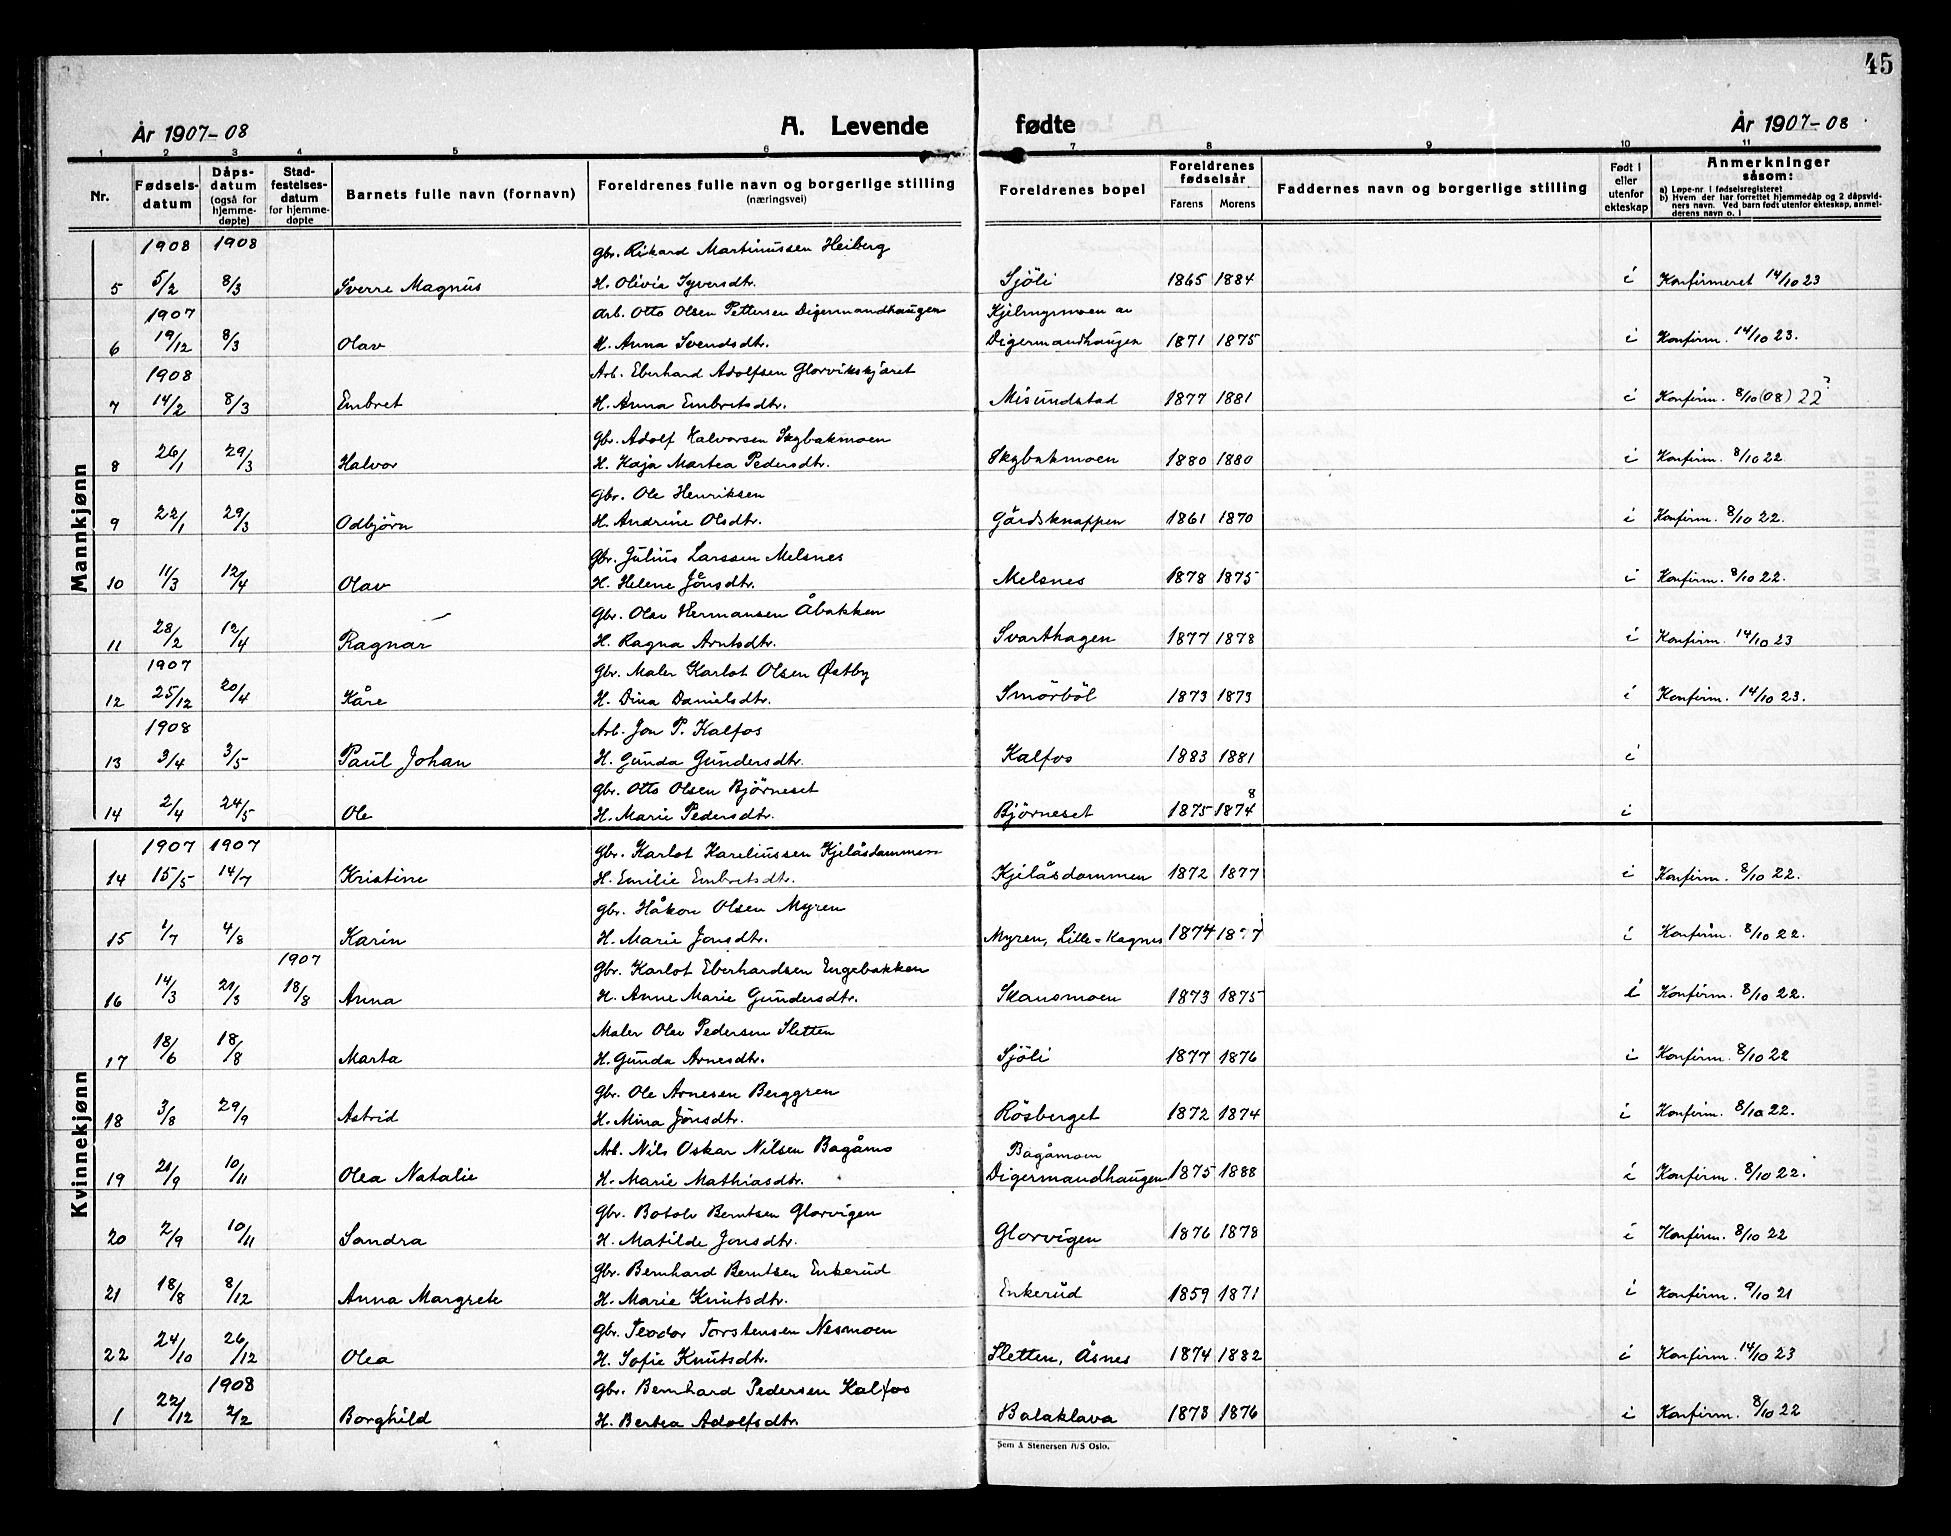 45
År 1907-08 A. Levende fødte År 1907-08
1 2 3 4 5 6 7 8 9 10 11
Nr. | Fødselsdatum | Dåpsdatum (også for hjemmedøpte) | Stadfestelsesdatum for hjemmedøpte | Barnets fulle navn (fornavn) | Foreldrenes fulle navn og borgerlige stilling (næringsvei) | Foreldrenes bopel | Foreldrenes fødselsår Farens Morens | Faddernes navn og borgerlige stilling | Født i eller utenfor ekteskap | Anmerkninger såsom: a) Løpe-nr. i fødselsregisteret b) Hvem der har forrettet hjemmedåp og 2 dåpsvidners navn. Ved barn født utenfor ekteskap, anmelderens navn o. l
Mannkjønn
1908 1908 Gbr. Rikard Martinussen Heiberg
5 5/2 8/3 Sverre Magnus H. Olivia Syversdtr. Sjöli 1865 1884 i Konfirmeret 14/10 23
1907 Arb. Otto Olsen Pettersen Digermandhaugen Kjelmyrmoen av
6 19/12 8/3 Olav H. Anna Svendsdtr. Digermandhaugen 1871 1875 i Konfirm. 14/10 23.
1908 Arb. Eberhard Adolfsen Glorvikskjæret
7 14/2 8/3 Embret H. Anna Embretsdtr. Misundstad 1877 1881 i Konfirm. 8/10 (08) 22?
Gbr. Adolf Halvorsen Skybakmoen
8 26/1 29/3 Halvor H. Kaja Martea Pedersdtr. Skybakmoen 1880 1880 i Konfirm. 8/10 22.
Gbr. Ole Henriksen
9 22/1 29/3 Odbjörn H. Andrine Olsdtr. Gårdsknappen 1861 1870 i Konfirm. 8/10 22.
Gbr. Julius Larssen Melsnes
10 11/3 12/4 Olav H. Helene Jönsdtr. Melsnes 1878 1875 i Konfirm. 8/10 22.
Gbr. Olav Hermansen Åbakken
11 28/2 12/4 Ragnar H. Ragna Arntsdtr. Svarthagen 1877 1878 i Konfirm. 14/10 23
1907 Gbr. Maler Karlot Olsen Østby
12 25/12 20/4 Kåre H. Dina Danielsdtr. Smörböl 1873 1873 i Konfirm. 14/10 23.
1908 Arb. Jon P. Kalfos
13 3/4 3/5 Paul Johan H. Gunda Gundersdtr. Kalfos 1883 1881 i
Gbr. Otto Olsen Björneset
14 2/4 24/5 Ole H. Marie Pedersdtr. Björneset 1875 1874 8 i
Kvinnekjønn
1907 1907 Gbr. Karlot Kareliussen Kjelåsdammen
14 15/5 14/7 Kristine H. Emilie Embretsdtr. Kjelåsdammen 1872 1877 i Konfirm. 8/10 22.
Gbr. Håkon Olsen Myren
15 1/7 4/8 Karin H. Marie Jonsdtr. Myren, Lille-Kagnes 1874 1877 i Konfirm. 8/10 22.
1907 Gbr. Karlot Eberhardsen Engebakken
16 14/3 21/3 18/8 Anna H. Anne Marie Gundersdtr. Skansmoen 1873 1875 i Konfirm. 8/10 22.
Maler Olav Pedersen Sletten
17 18/6 18/8 Marta H. Gunda Arnesdtr. Sjöli 1877 1876 i Konfirm. 8/10 22
Gbr. Ole Arnesen Berggren
18 3/8 29/9 Astrid H. Mina Jönsdtr. Rösberget 1872 1874 i Konfirm. 8/10 22.
Arb. Nils Oskar Nilsen Bagåmo Bagåmoen
19 21/9 10/11 Olea Natalie H. Marie Mathiasdtr. Digermandhaugen 1875 1888 i Konfirm. 8/10 22.
Gbr. Botolv Berntsen Glorvigen
20 2/9 10/11 Sandra H. Matilde Jonsdtr. Glorvigen 1876 1878 i Konfirm. 8/10 22
Gbr. Bernhard Berntsen Enkerud
21 18/8 8/12 Anna Margrete H. Marie Knutsdtr. Enkerud 1859 1871 i Konfirm. 9/10 21
Gbr. Teodor Torstensen Nesmoen
22 24/10 26/12 Olea H. Sofie Knutsdtr. Sletten, Åsnes 1874 1882 i Konfirm. 14/10 23
1908 Gbr. Bernhard Pedersen Kalfos
1 22/12 2/2 Borghild H. Bertea Adolfsdtr. Balaklava 1873 1876 i Konfirm. 8/10 22
Sem & Stenersen A/S Oslo.